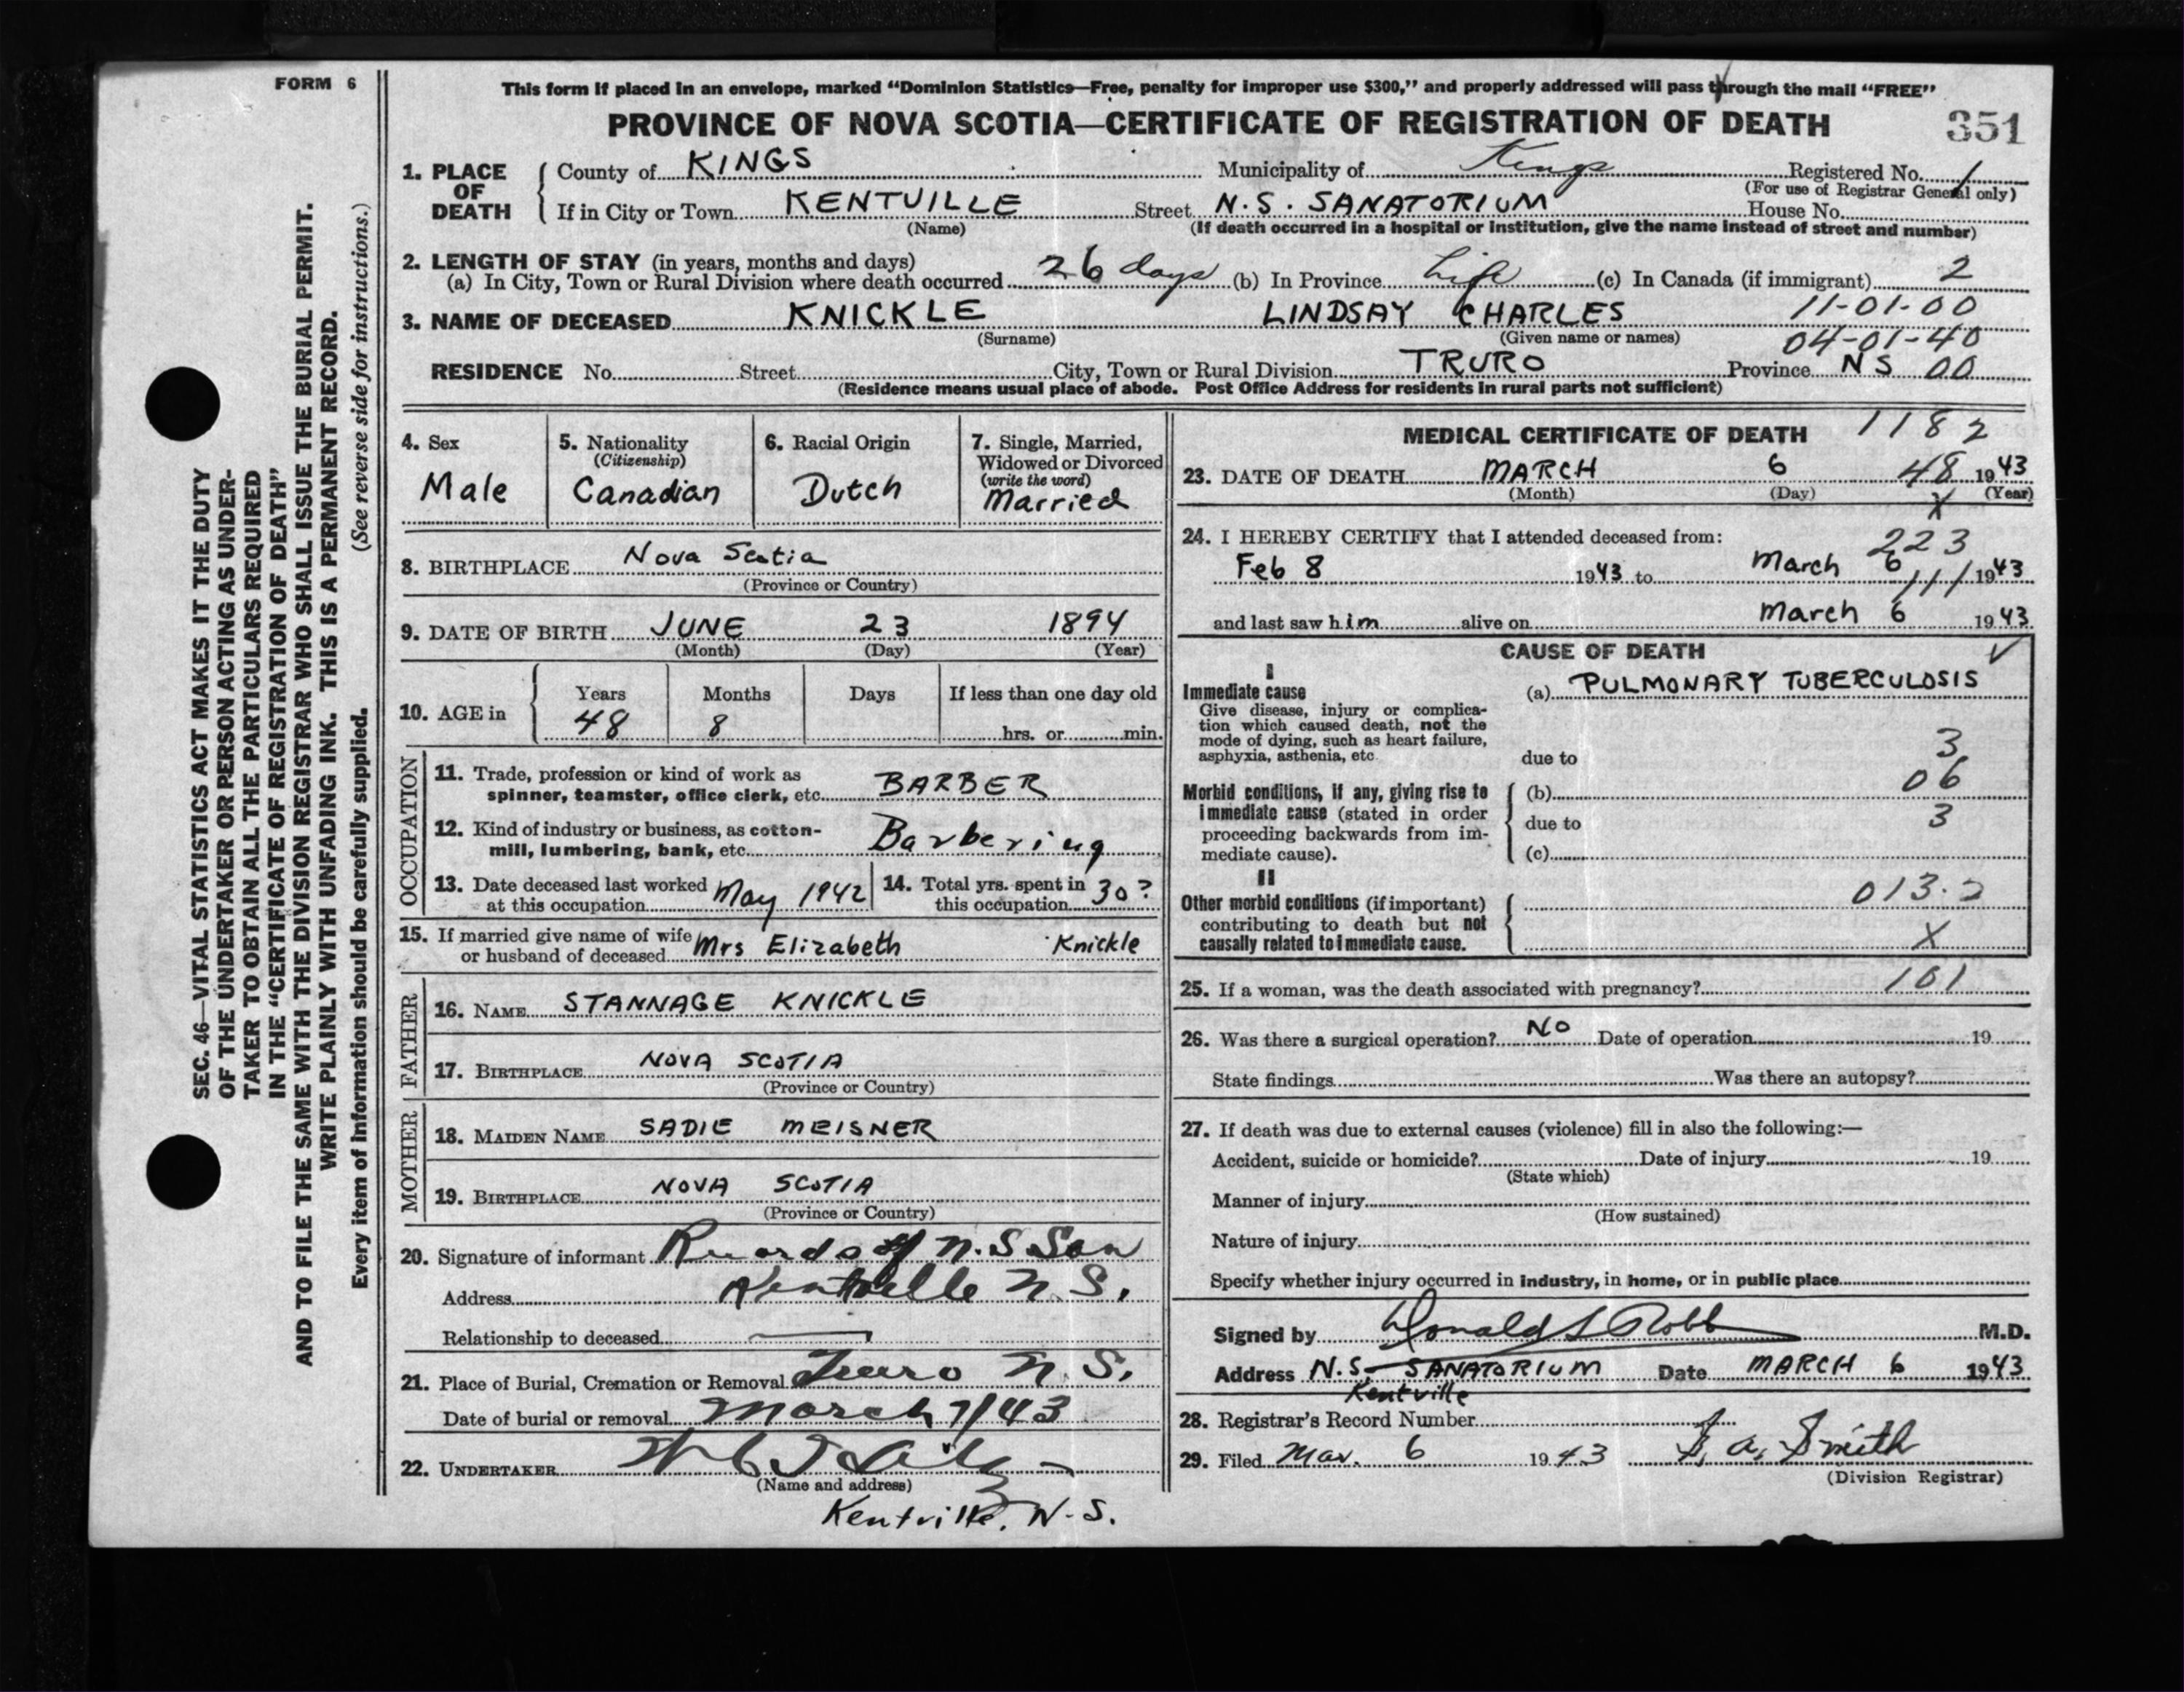 FORM 6
This form if placed in an envelope, marked “Dominion Statistics—Free, penalty for improper use $300,” and properly addressed will pass through the mail “FREE”
PROVINCE OF NOVA SCOTIA—CERTIFICATE OF REGISTRATION OF DEATH
351
1. PLACE OF DEATH
County of KINGS Municipality of Kings Registered No. 1
(For use of Registrar General only)
If in City or Town KENTVILLE Street N.S. SANATORIUM House No.
(Name) (If death occurred in a hospital or institution, give the name instead of street and number)
2. LENGTH OF STAY (in years, months and days)
(a) In City, Town or Rural Division where death occurred 26 days (b) In Province Life (c) In Canada (if immigrant) 2
11-01-00
3. NAME OF DECEASED KNICKLE LINDSAY CHARLES
(Surname) (Given name or names) 04-01-40
RESIDENCE No. Street City, Town or Rural Division TRURO Province NS 00
(Residence means usual place of abode. Post Office Address for residents in rural parts not sufficient)
4. Sex
Male
5. Nationality
(Citizenship)
Canadian
6. Racial Origin
Dutch
7. Single, Married,
Widowed or Divorced
(write the word)
Married
8. BIRTHPLACE Nova Scotia
(Province or Country)
9. DATE OF BIRTH JUNE 23 1894
(Month) (Day) (Year)
10. AGE in
Years Months Days If less than one day old
48 8 hrs. or min.
OCCUPATION
11. Trade, profession or kind of work as
spinner, teamster, office clerk, etc. BARBER
12. Kind of industry or business, as cotton-
mill, lumbering, bank, etc. Barbering
13. Date deceased last worked
at this occupation May 1942
14. Total yrs. spent in
this occupation 30?
15. If married give name of wife
or husband of deceased Mrs Elizabeth Knickle
FATHER
16. NAME STANNAGE KNICKLE
17. BIRTHPLACE NOVA SCOTIA
(Province or Country)
MOTHER
18. MAIDEN NAME SADIE MEISNER
19. BIRTHPLACE NOVA SCOTIA
(Province or Country)
20. Signature of informant Records of N.S San
Address Kentville N.S.
Relationship to deceased
21. Place of Burial, Cremation or Removal Truro N.S.
Date of burial or removal March 7/43
22. UNDERTAKER
(Name and address)
Kentville, N.S.
MEDICAL CERTIFICATE OF DEATH 1182
23. DATE OF DEATH MARCH 6 48 1943
(Month) (Day) X (Year)
24. I HEREBY CERTIFY that I attended deceased from:
223
Feb 8 1943 to March 6 111 1943
and last saw him alive on March 6 1943
CAUSE OF DEATH
I
Immediate cause
Give disease, injury or complica-
tion which caused death, not the
mode of dying, such as heart failure,
asphyxia, asthenia, etc.
(a) PULMONARY TUBERCULOSIS
due to 3
Morbid conditions, if any, giving rise to
immediate cause (stated in order
proceeding backwards from im-
mediate cause).
(b) 06
due to 3
(c)
II
Other morbid conditions (if important)
contributing to death but not
causally related to immediate cause.
013.2
X
25. If a woman, was the death associated with pregnancy? 101
26. Was there a surgical operation? NO Date of operation 19
State findings Was there an autopsy?
27. If death was due to external causes (violence) fill in also the following:—
Accident, suicide or homicide? Date of injury 19
(State which)
Manner of injury
(How sustained)
Nature of injury
Specify whether injury occurred in industry, in home, or in public place
Signed by Donald S Robb M.D.
Address N.S. SANATORIUM Date MARCH 6 1943
Kentville
28. Registrar's Record Number
29. Filed Mar. 6 1943 A. Smith
(Division Registrar)
SEC. 46—VITAL STATISTICS ACT MAKES IT THE DUTY
OF THE UNDERTAKER OR PERSON ACTING AS UNDER-
TAKER TO OBTAIN ALL THE PARTICULARS REQUIRED
IN THE “CERTIFICATE OF REGISTRATION OF DEATH”
AND TO FILE THE SAME WITH THE DIVISION REGISTRAR WHO SHALL ISSUE THE BURIAL PERMIT.
WRITE PLAINLY WITH UNFADING INK. THIS IS A PERMANENT RECORD.
Every item of information should be carefully supplied. (See reverse side for instructions.)